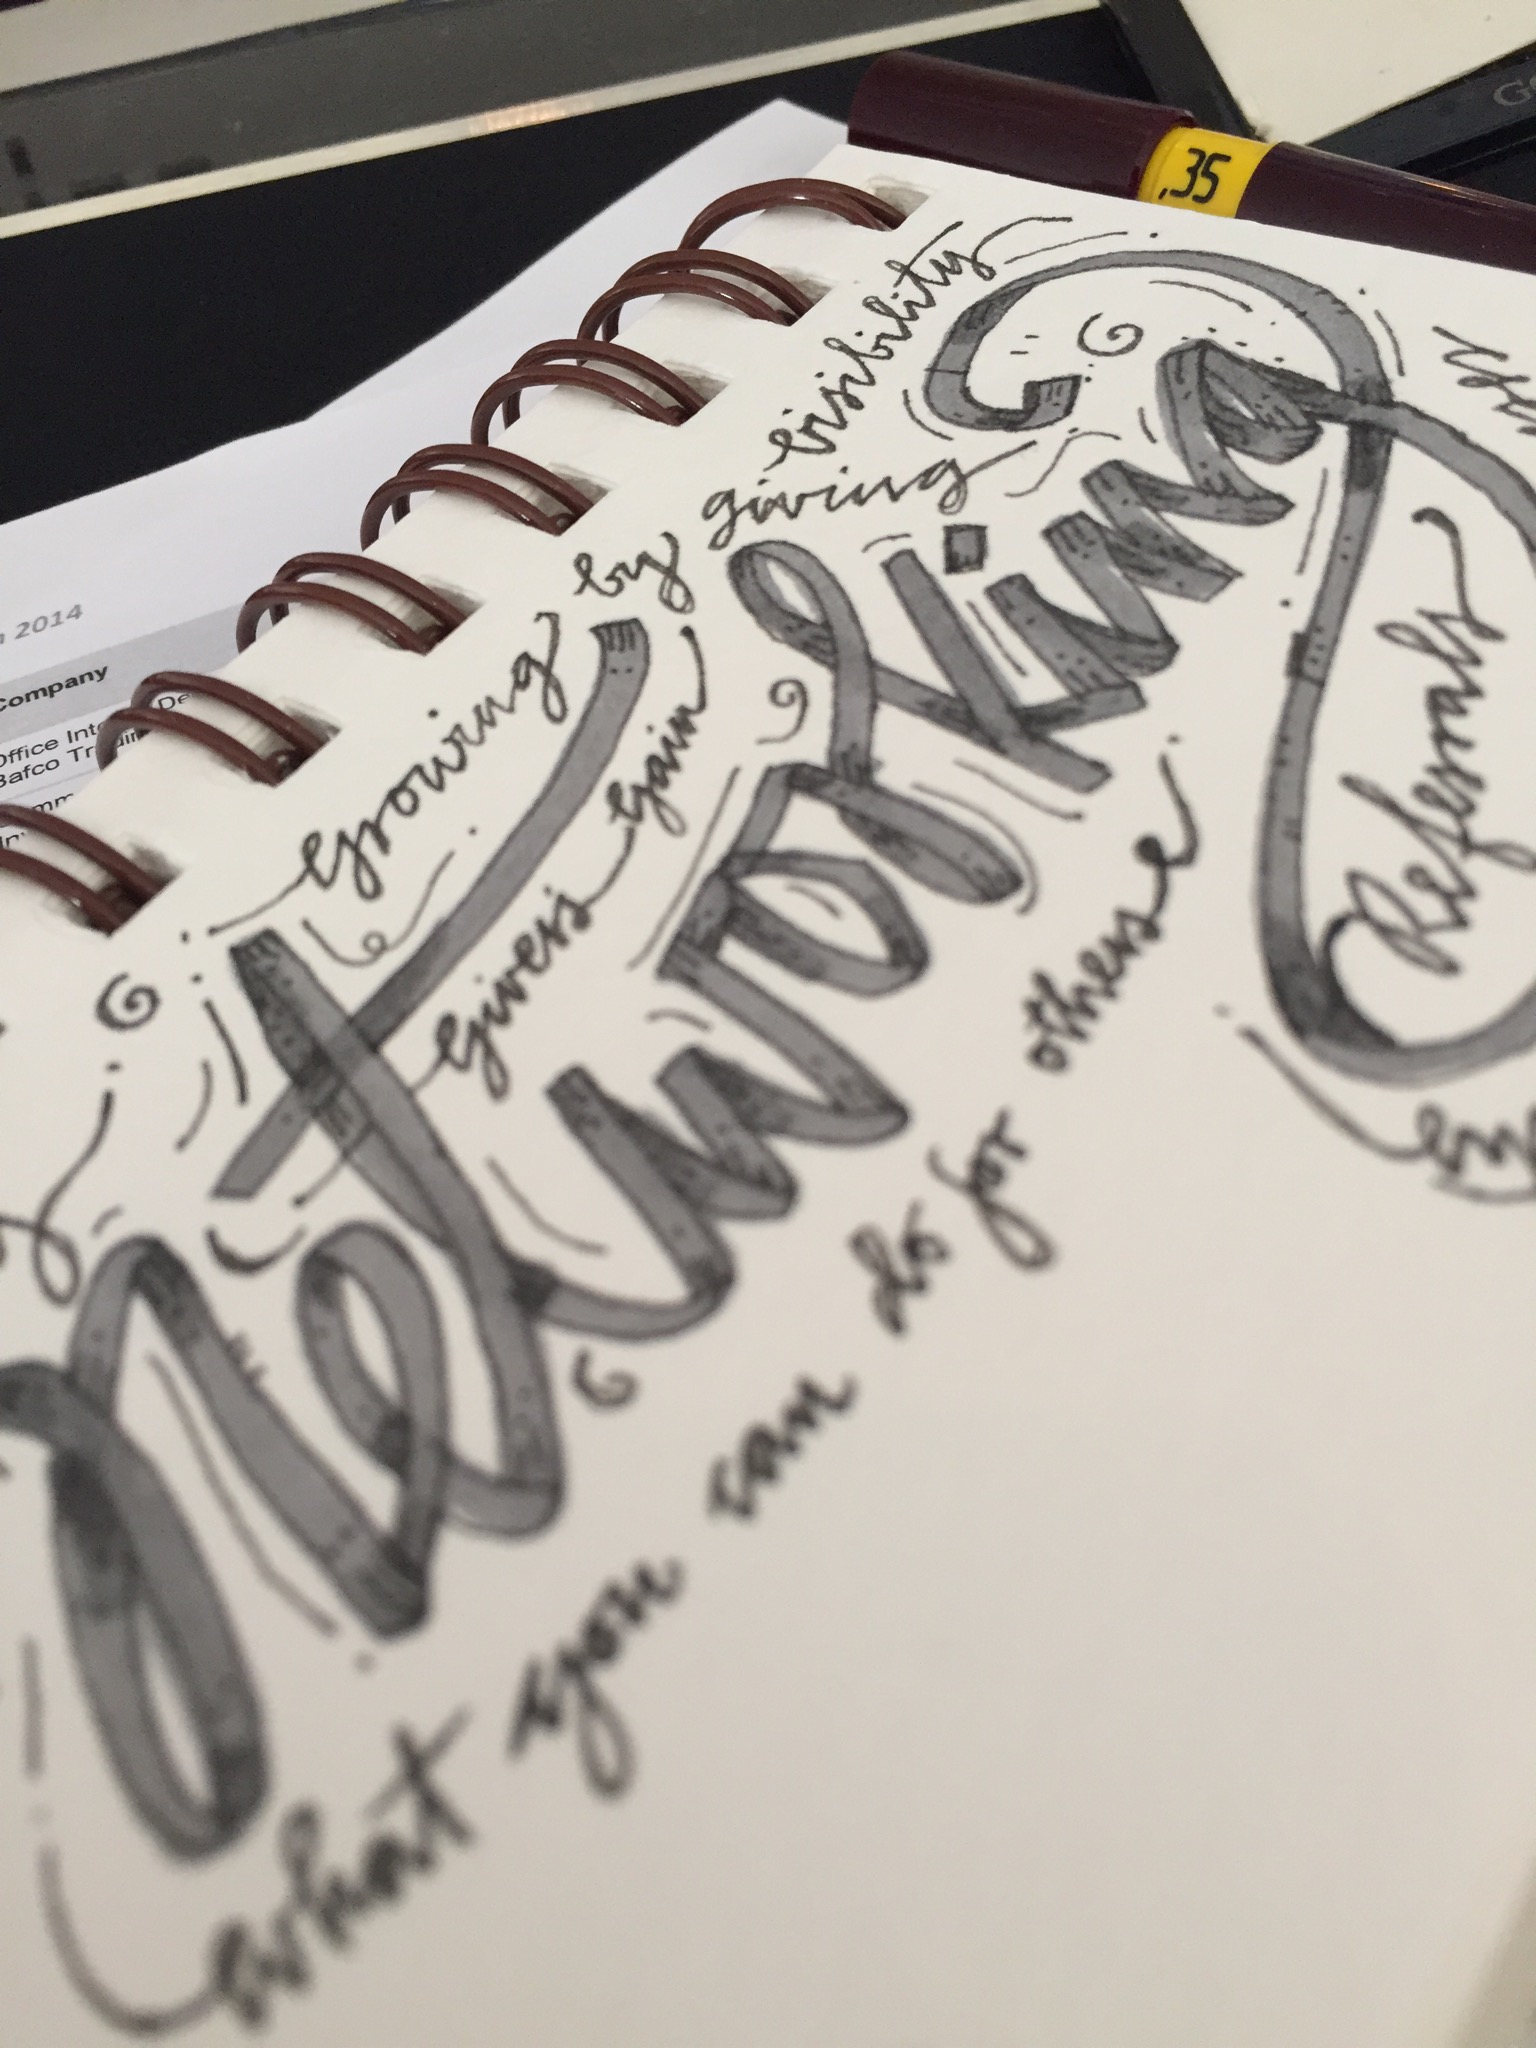 .35
2014
Company
Office
Bafco
visibility
Growing by giving
Givers Gain
Networking
Referrals
What you can do for others